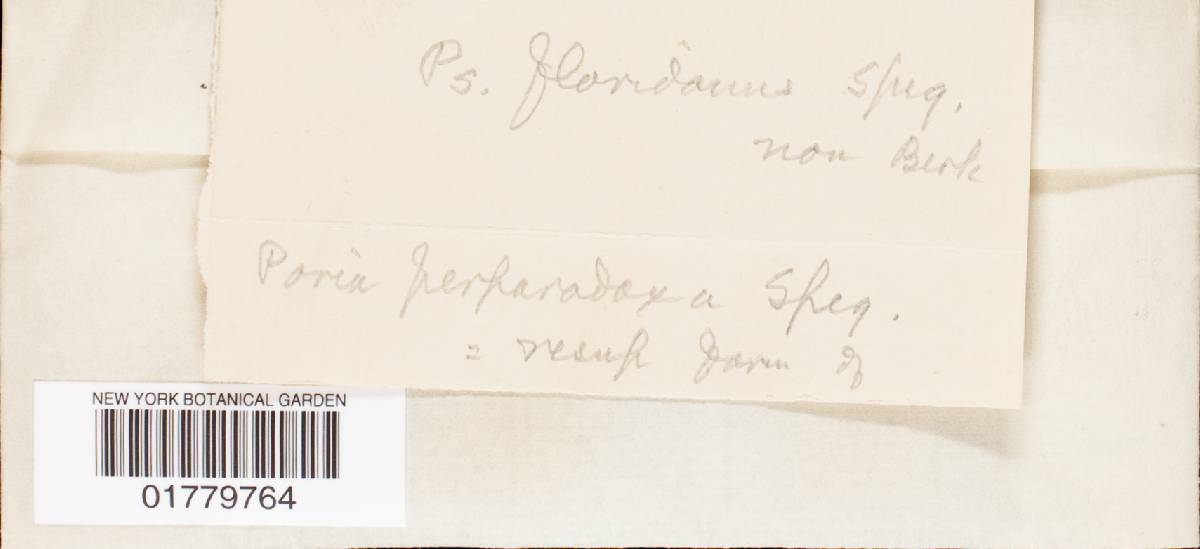 Ps. floridanus Speg.
non Berk
Poria perparadoxa Speg.
= resup form of
NEW YORK BOTANICAL GARDEN
01779764